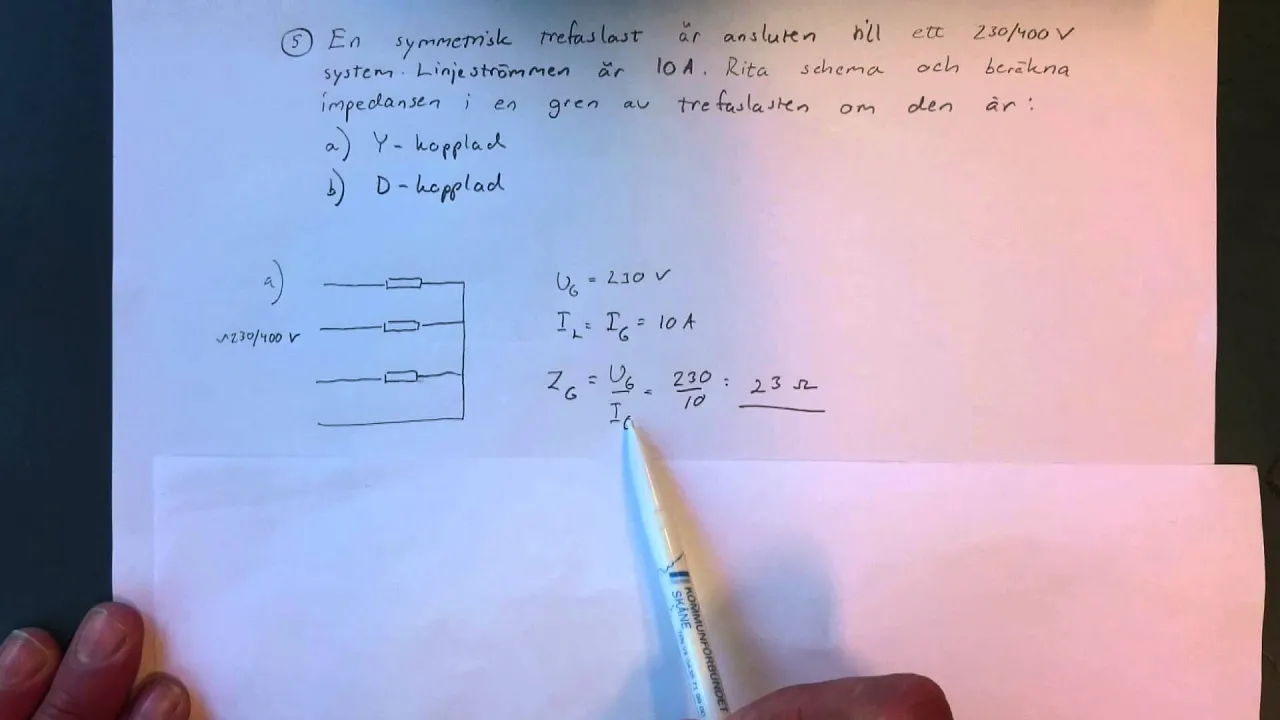 5 En symmetrisk trefaslast är ansluten till ett 230/400 V
system. Linjeströmmen är 10 A. Rita schema och beräkna
impedansen i en gren av trefaslasten om den är:
a) Y-kopplad
b) D-kopplad
a)
~230/400 V
U_G = 230 V
I_L = I_G = 10 A
Z_G = U_G/I_G = 230/10 = 23 Ω
KOMMUNFÖRBUNDET
SKÅNE